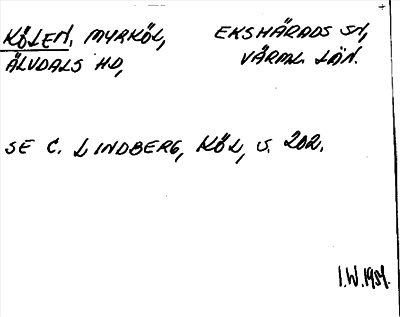 KÖLEN, MYRKÖL, EKSHÄRADS SN,
ÄLVDALS HD, VÄRML. LÄN.
SE C. LINDBERG, KÖL, S. 202.
I.W. 1951.